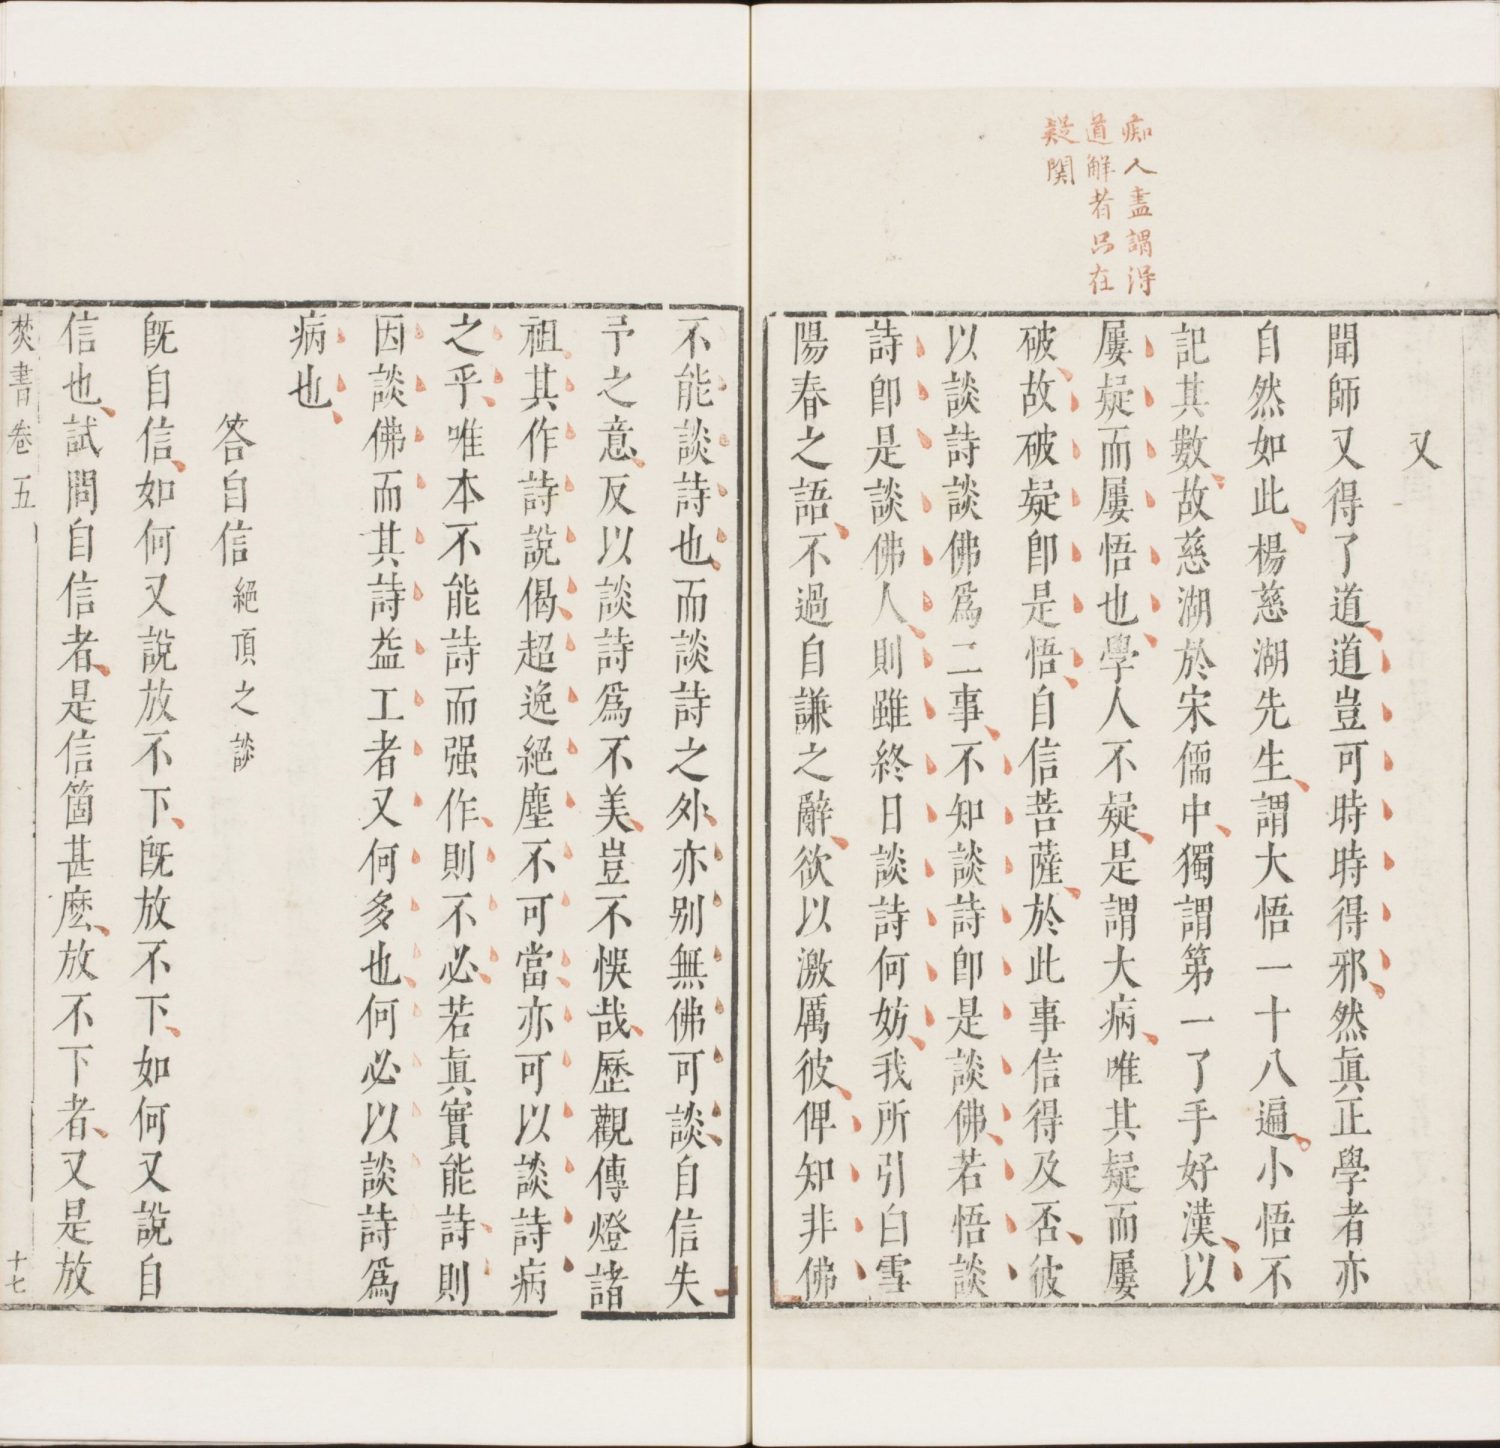 痴人盡謂淂
道解者只在
疑関
又
聞師又得了道道豈可時時得邪然眞正學者亦
自然如此楊慈湖先生謂大悟一十八遍小悟不
記其數故慈湖於宋儒中獨謂第一了手好漢以
屢疑而屢悟也學人不疑是謂大病唯其疑而屢
破故破疑卽是悟自信菩薩於此事信得及否彼
以談詩談佛爲二事不知談詩卽是談佛若悟談
詩卽是談佛人則雖終日談詩何妨我所引白雪
陽春之語不過自謙之辭欲以激厲彼俾知非佛
不能談詩也而談詩之外亦别無佛可談自信失
予之意反以談詩爲不美豈不悞哉歷觀傳燈諸
祖其作詩說偈超逸絕塵不可當亦可以談詩病
之乎唯本不能詩而强作則不必若眞實能詩則
因談佛而其詩益工者又何多也何必以談詩爲
病也
答自信絕頂之談
旣自信如何又說放不下旣放不下如何又說自
信也試問自信者是信箇甚麽放不下者又是放
焚書卷五 十七